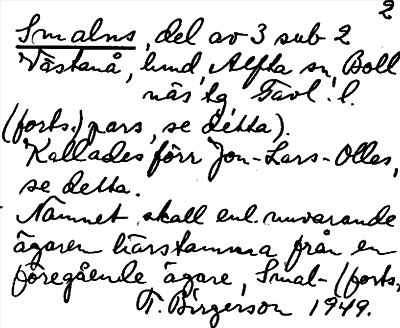 2
Smalns, del av 3 sub 2
Västanå, lund, Alfta sn, Boll
näs tg Gävl. l.
(forts.) pars, se detta).
Kallades förr Jon-Lars-Olles,
se detta.
Namnet skall enl. nuvarande
ägaren härstamma från en
föregående ägare, Smal- (forts.
T. Birgerson 1949.